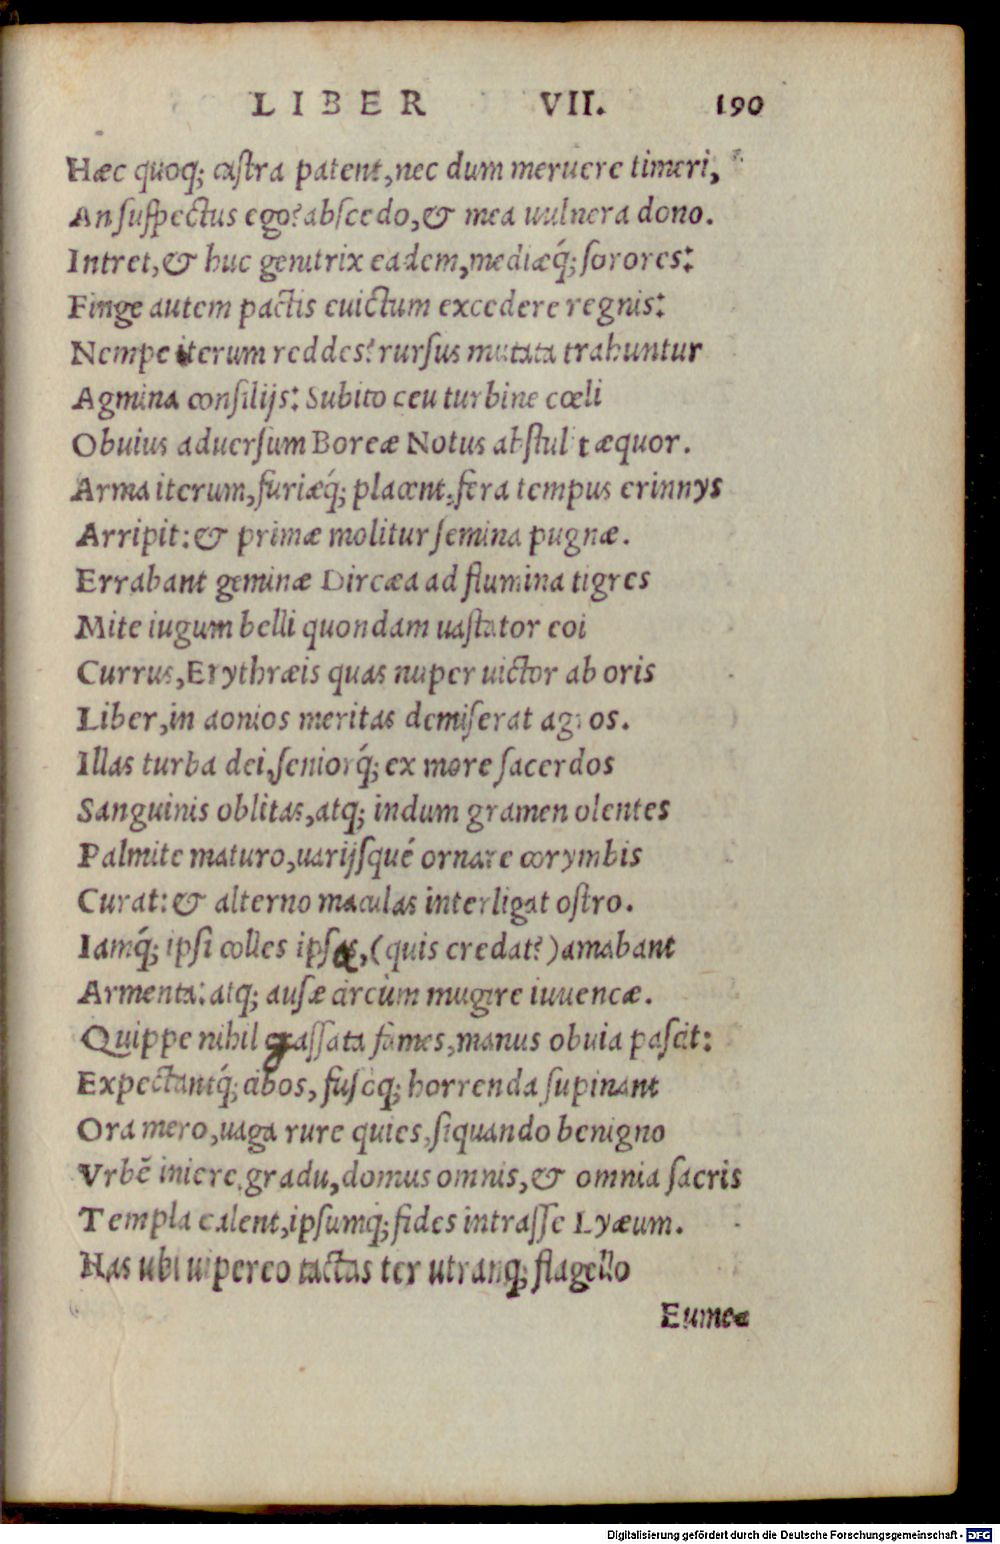 LIBER VII. 190
Hæc quoq; castra patent, nec dum meruere timeri,
An suspectus ego? abscedo, & mea uulnera dono.
Intret, & huc genitrix eadem, mediæq́; sorores:
Finge autem pactis euictum excedere regnis:
Nempe iterum reddes? rursus mutata trahuntur
Agmina consilijs: Subito ceu turbine cœli
Obuius aduersum Boreæ Notus abstulit æquor.
Arma iterum, furiæq́; placent, fera tempus erinnys
Arripit: & primæ molitur semina pugnæ.
Errabant geminæ Dircæa ad flumina tigres
Mite iugum belli quondam uastator eoi
Currus, Erythræis quas nuper uictor ab oris
Liber, in aonios meritas demiserat agros.
Illas turba dei, seniorq́; ex more sacerdos
Sanguinis oblitas, atq; indum gramen olentes
Palmite maturo, uarijsqué ornare corymbis
Curat: & alterno maculas interligat ostro.
Iamq́; ipsi colles ipsæ, (quis credat?) amabant
Armenta: atq; ausæ circùm mugire iuuencæ.
Quippe nihil grassata fames, manus obuia pascit:
Expectantq́; cibos, fusoq; horrenda supinant
Ora mero, uaga rure quies, siquando benigno
Vrbē iniere, gradu, domus omnis, & omnia sacris
Templa calent, ipsumq; fides intrasse Lyæum.
Has ubi uipereo tactas ter utranq; flagello
Eume
Digitalisierung gefördert durch die Deutsche Forschungsgemeinschaft - DFG